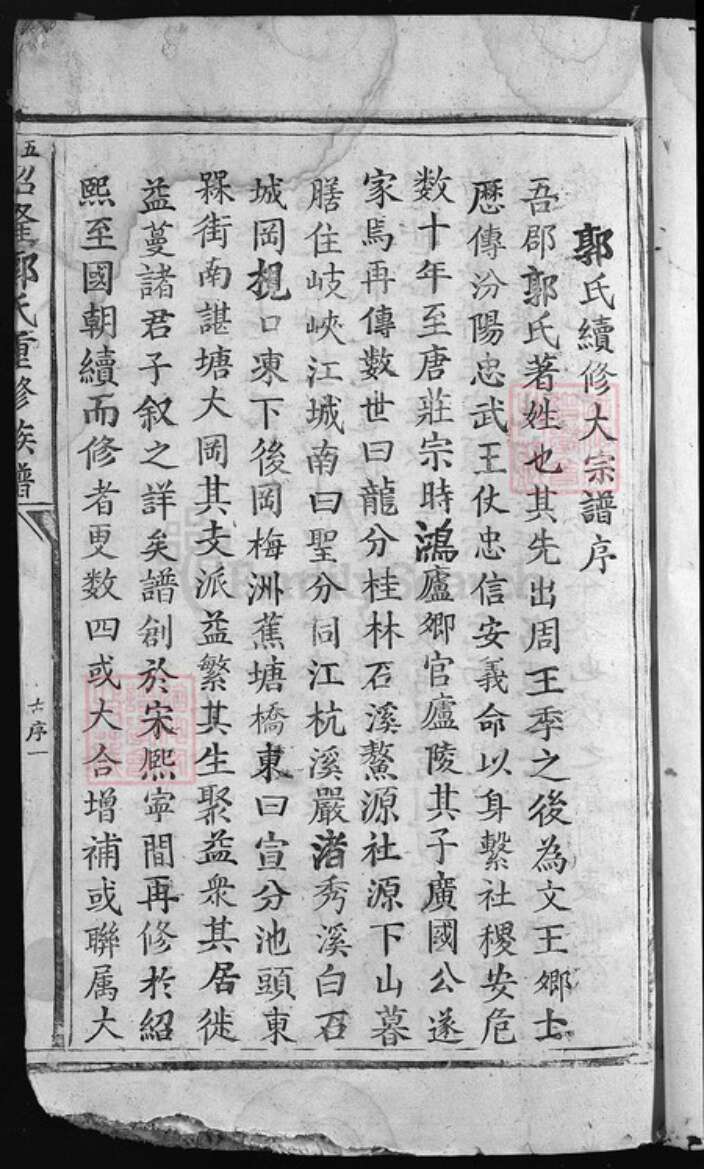 郭氏續修大宗譜序
吾郡郭氏著姓也其先出周王季之後為文王鄉士
歴傳汾陽忠武王仗忠信安義命以身繫社稷安危
数十年至唐莊宗時鴻廬鄉官廬陵其子廣國公遂
家焉再傳数世曰龍分桂林石溪鰲源社源下山暮
膳住岐峽江城南曰聖分同江杭溪嚴渚秀溪白石
城岡梘口凍下後岡梅洲蕉塘橋東曰宣分池頭東
槑街南諶塘大岡其支派益繁其生聚益衆其居徙
益蔓諸君子叙之詳矣譜創於宋熈寧間再修於紹
熙至國朝續而修者更数四或大合增補或聯属大
五紹隆郭氏重修族譜
序一
FamilySearch